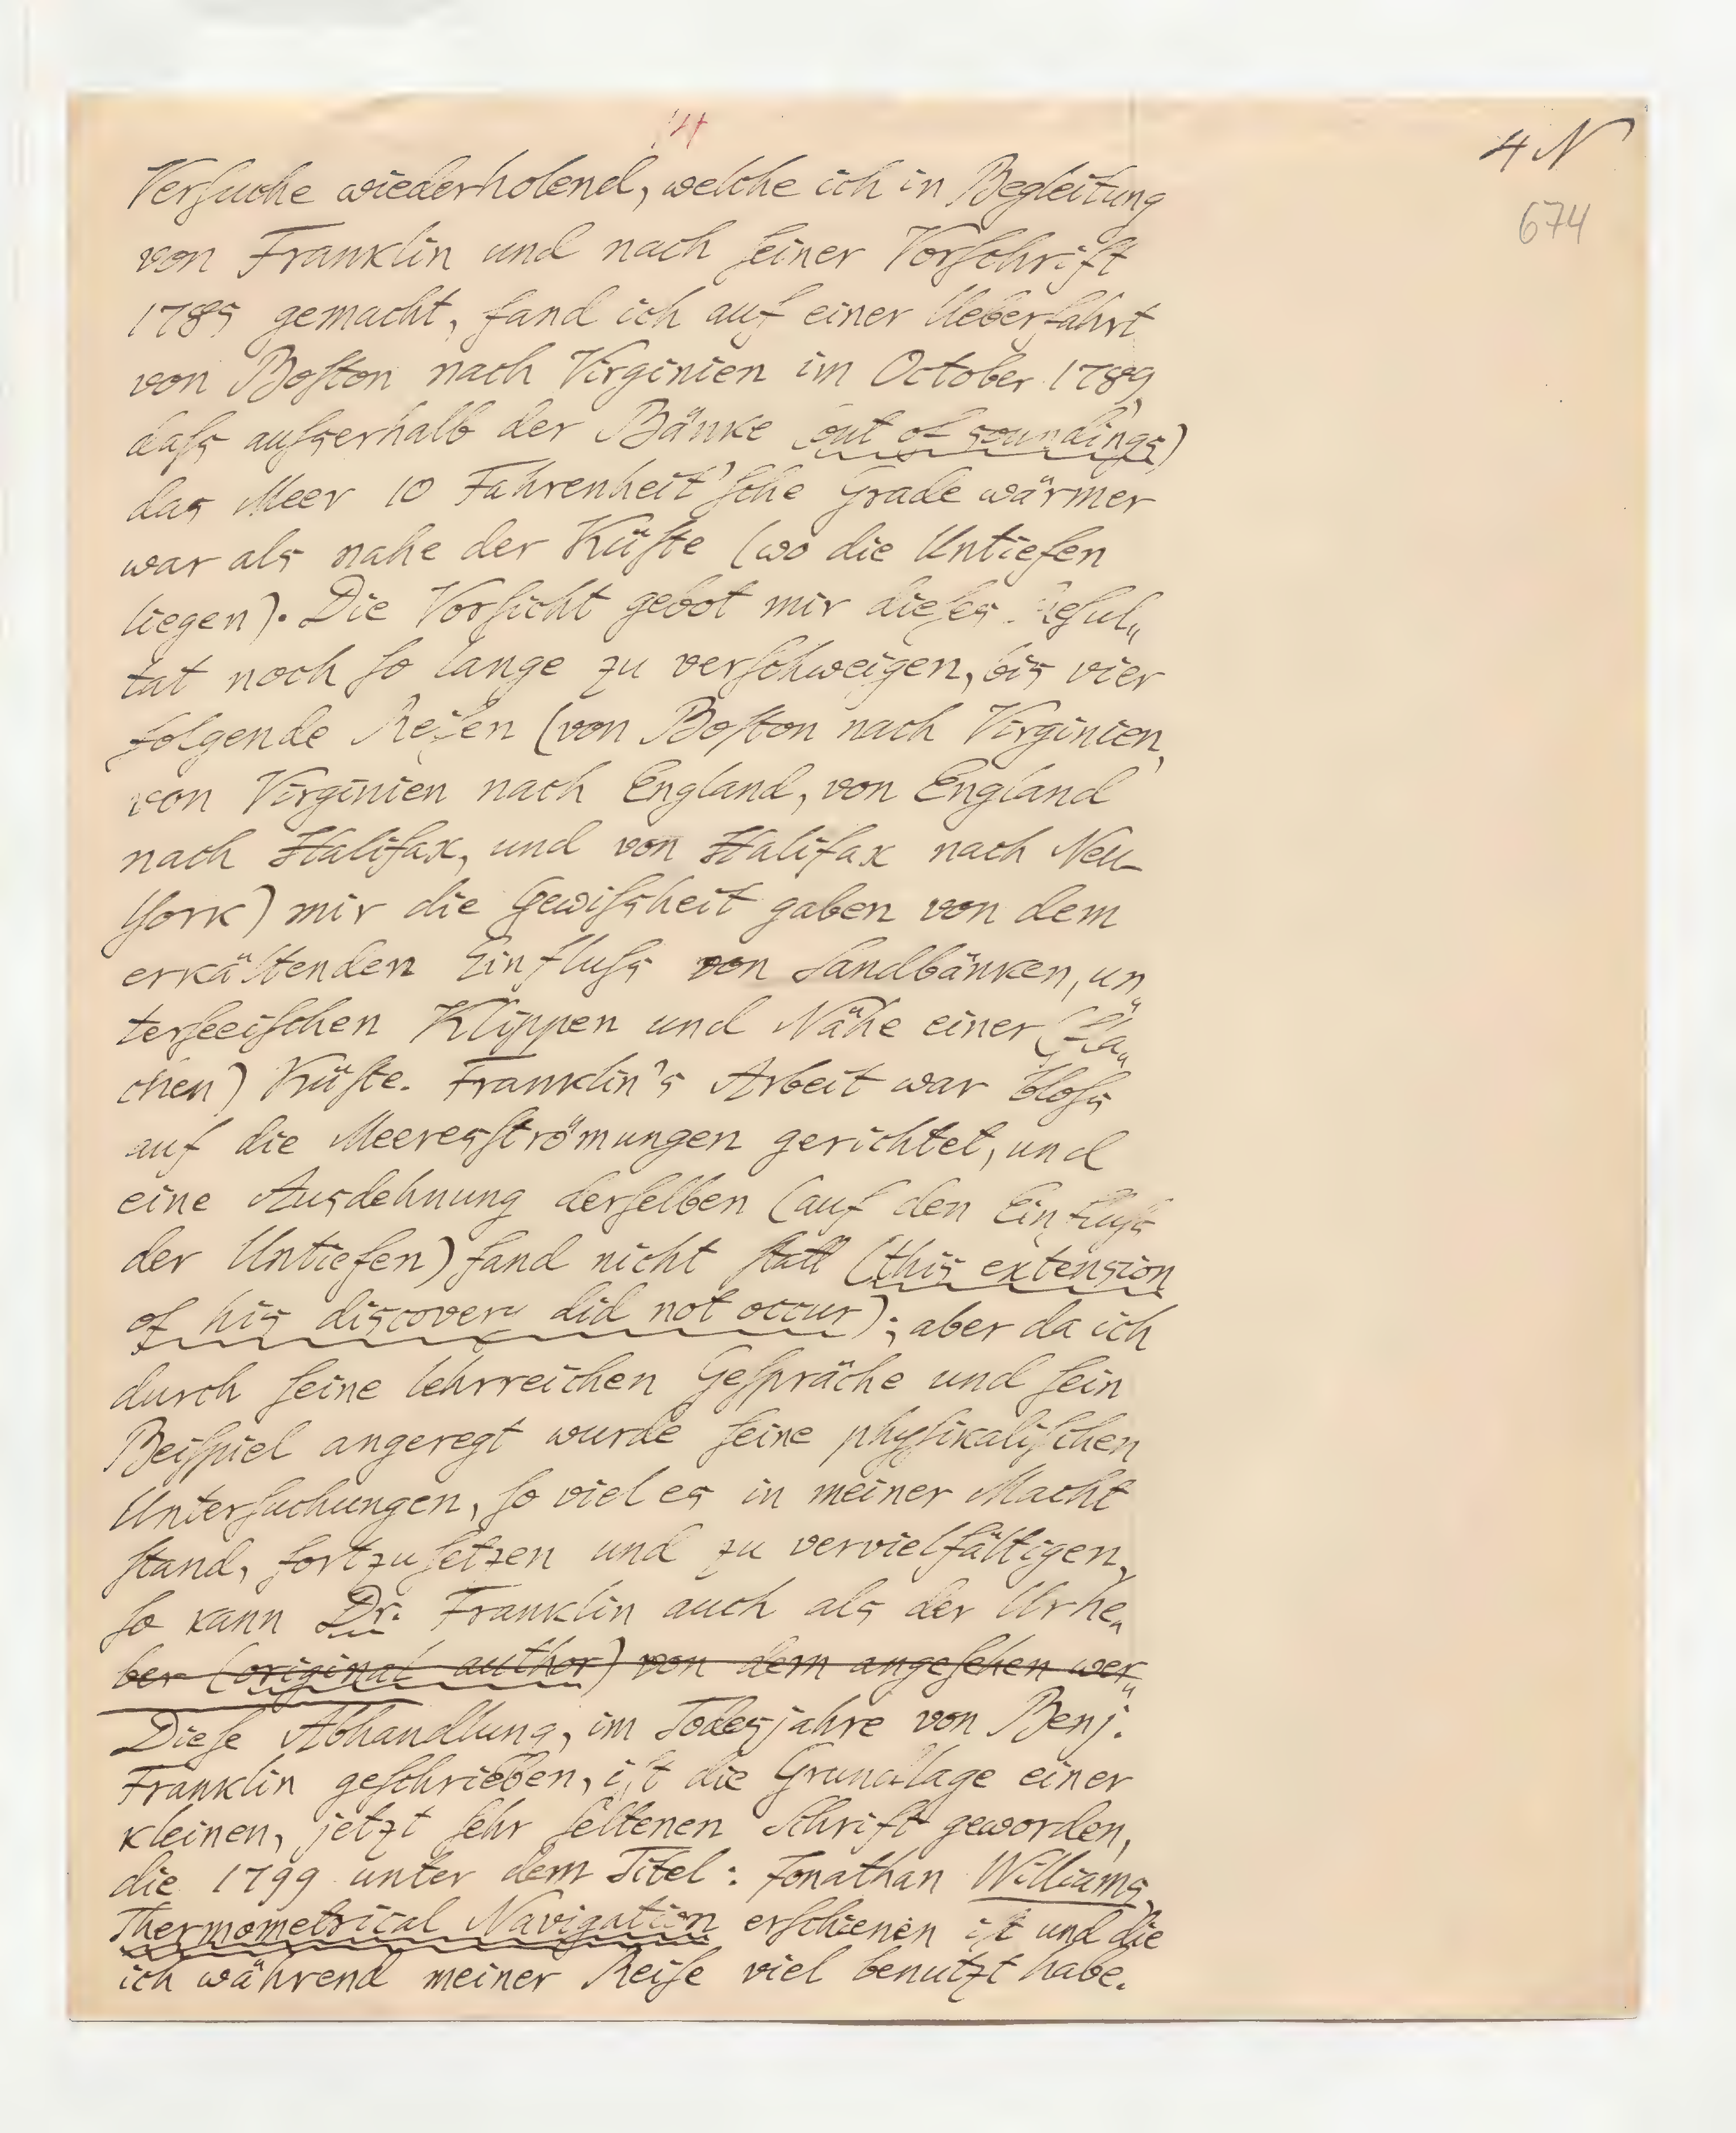 4
4 N
674
Verſuche wiederholend, welche ich in Begleitung
von Franklin und nach ſeiner Vorſchrift
1785 gemacht, fand ich auf einer Ueberfahrt
von Boſton nach Virginien im October 1789,
daſs auſserhalb der Bänke (out of soundings)
das Meer 10 Fahrenheit'ſche Grade wärmer
war als nahe der Küſte (wo die Untiefen
liegen). Die Vorſicht gebot mir dieſes Reſul„
tat noch ſo lange zu verſchweigen, bis vier
folgende Reiſen (von Boſton nach Virginien,
von Virginien nach England, von England
nach Halifax, und von Halifax nach Neu-
York) mir die Gewiſsheit gaben von dem
erkältenden Einfluſs von Sandbänken, un„
terſeeiſchen Klippen und Nähe einer (fla„
chen) Küſte. Franklin's Arbeit war bloſs
auf die Meeresſtrömungen gerichtet, und
eine Ausdehnung derſelben (auf den Einfluſs
der Untiefen) fand nicht ſtatt (this extension
of his discovery did not occur); aber da ich
durch ſeine lehrreichen Geſpräche und ſein
Beiſpiel angeregt wurde ſeine phyſikaliſchen
Unterſuchungen, ſo viel es in meiner Macht
ſtand, fortzuſetzen und zu vervielfältigen,
ſo kann Dr. Franklin auch als der Urhe„
ber (original author) von dem angeſehen wer„
Dieſe Abhandlung, im Todesjahre von Benj.
Franklin geſchrieben, iſt die Grundlage einer
kleinen, jetzt ſehr ſeltenen Schrift geworden,
die 1799 unter dem Titel: Jonathan Williams,
Thermometrical Navigation erſchienen iſt und die
ich während meiner Reiſe viel benutzt habe.